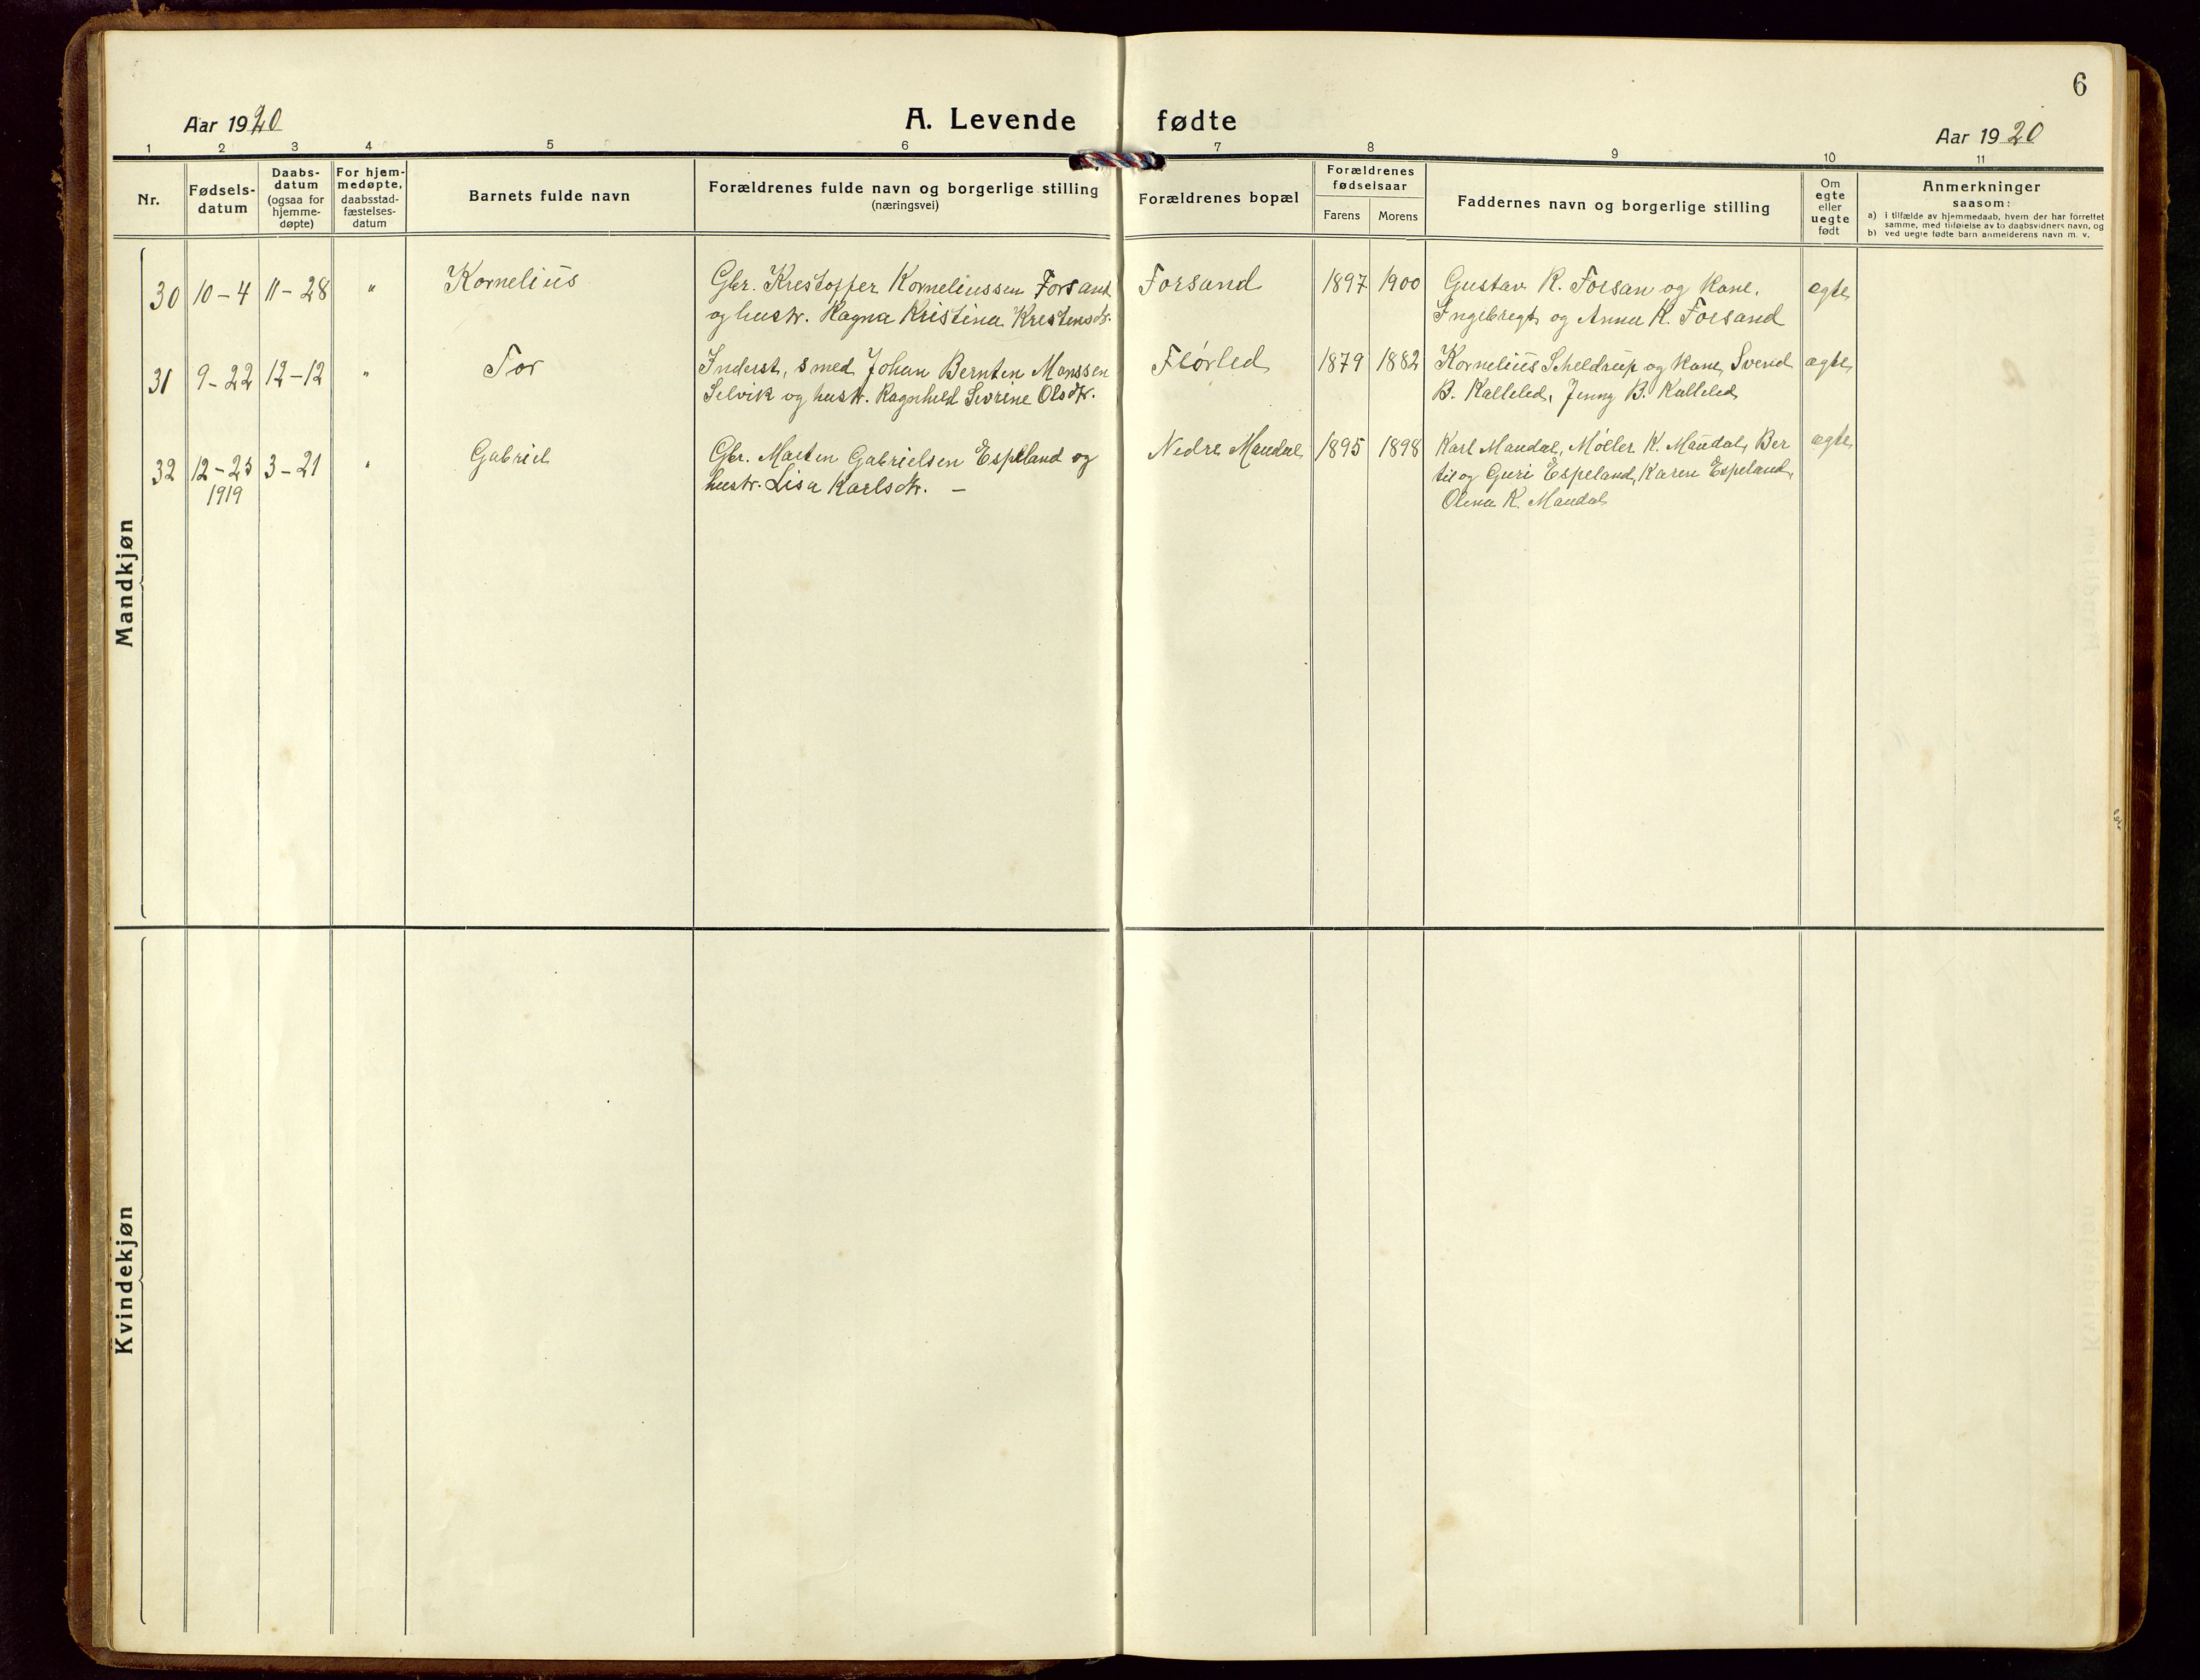 6
Aar 1920
A. Levende fødte
Aar 1920
1 2 3 4 5 6 7 8 9 10 11
Nr.
Fødsels-
datum
Daabs-
datum
(ogsaa for
hjemme-
døpte)
For hjem-
medøpte,
daabsstad-
fæstelses-
datum
Barnets fulde navn
Forældrenes fulde navn og borgerlige stilling
(næringsvei)
Forældrenes bopæl
Forældrenes
fødselsaar
Farens Morens
Faddernes navn og borgerlige stilling
Om
egte
eller
uegte
født
Anmerkninger
saasom:
a) i tilfælde av hjemmedaab, hvem der har forrettet
samme, med tilføielse av to daabsvidners navn, og
b) ved uegte fødte barn anmelderens navn m. v.
Mandkjøn
30 10-4 11-28 " Kornelius Gbr. Krestoffer Korneliussen Forsand Forsand 1897 1900 Gustav K. Forsan og kone, egte
og hustr. Ragna Kristine Kristensdr. Ingebregt og Anna K. Forsand
31 9-22 12-12 " Tor Inderst, smed Johan Bernten Monssen Flørled 1879 1882 Kornelius Scheldrup og kone, Svend egte
Selvik og hustr. Ragnhild Sevrine Olsdtr. B. Kalleled, Jenny B. Kalleled
32 12-23 3-21 " Gabriel Gbr. Marten Gabrielsen Espeland og Nedre Maudal 1895 1898 Karl Maudal, Møller K. Maudal, Ber egte
1919 hustr. Lisa Karlsdtr. — til og Guri Espeland, Karen Espeland,
Olena K. Maudal
Kvindekjøn